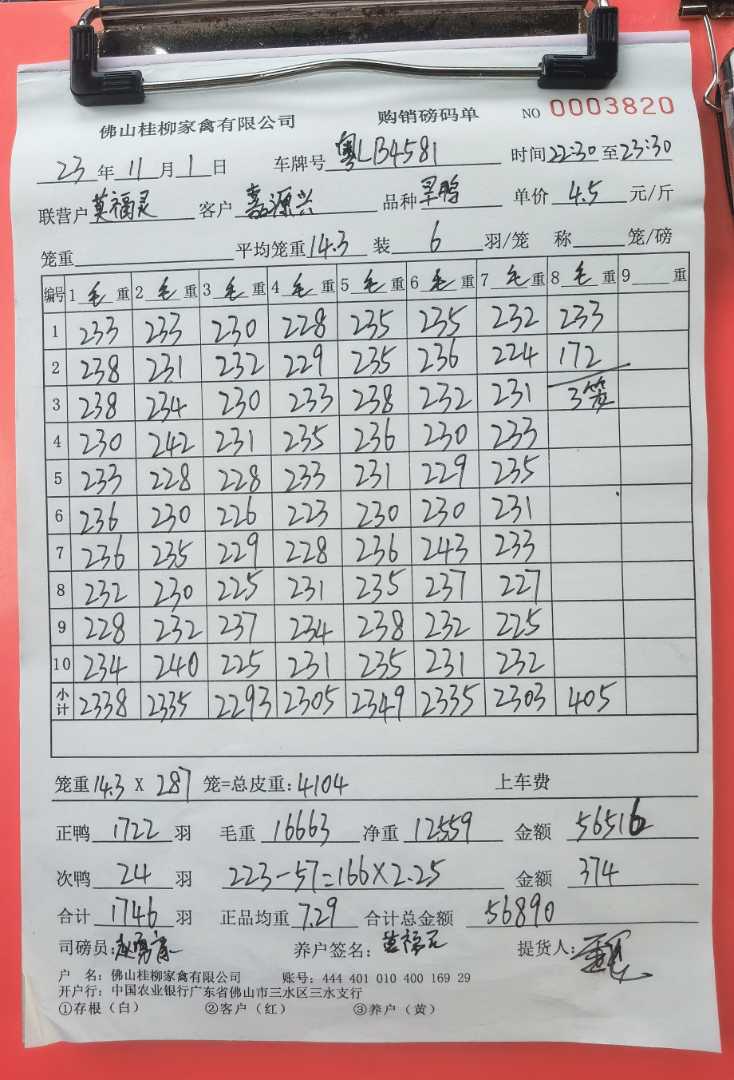 佛山桂柳家禽有限公司 购销磅码单 NO 0003820
23 年 11 月 1 日 车牌号 粤LB4581 时间 22:30 至 23:30
联营户 莫福灵 客户 嘉源兴 品种 旱鸭 单价 4.5 元/斤
笼重 平均笼重 14.3 装 6 羽/笼 称 笼/磅
编号 1 毛 重 2 毛 重 3 毛 重 4 毛 重 5 毛 重 6 毛 重 7 毛 重 8 毛 重 9 重
1 233 233 230 228 235 235 232 233
2 238 231 232 229 235 236 224 172
3 238 234 230 233 238 232 231 3笼
4 230 242 231 235 236 230 233
5 233 228 228 233 231 229 235
6 236 230 226 223 230 230 231
7 236 235 229 228 236 243 233
8 232 230 225 231 235 237 227
9 228 232 237 234 238 232 225
10 234 240 225 231 235 231 232
小计 2338 2335 2293 2305 2349 2335 2303 405
笼重 14.3 X 287 笼=总皮重: 4104 上车费
正鸭 1722 羽 毛重 16663 净重 12559 金额 56516
次鸭 24 羽 223-57=166X2.25 金额 374
合计 1746 羽 正品均重 7.29 合计总金额 56890
司磅员: 养户签名: 提货人:
户 名: 佛山桂柳家禽有限公司 账号: 444 401 010 400 169 29
开户行: 中国农业银行广东省佛山市三水区三水支行
①存根（白） ②客户（红） ③养户（黄）